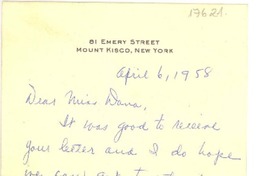 17621.
61 EMERY STREET
MOUNT KISCO, NEW YORK
April 6, 1958
Dear Miss Dana,
It was good to receive
your letter and I do hope
we can